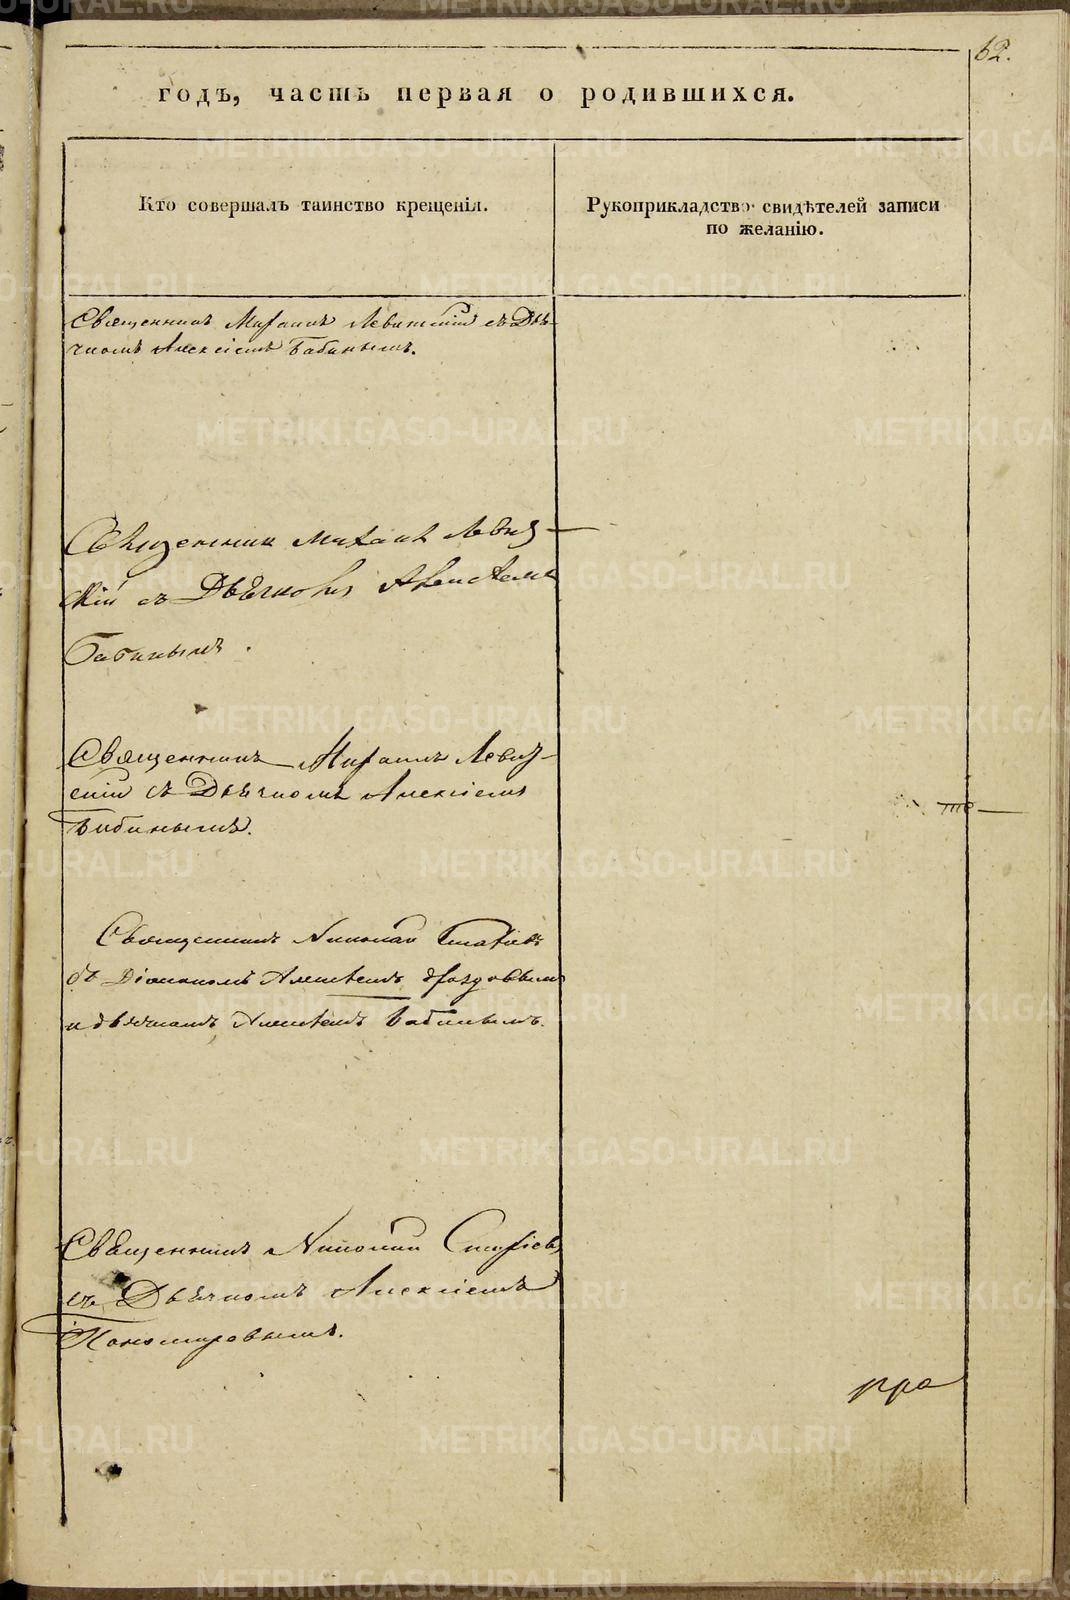 62.
годъ, часть первая о родившихся.
Кто совершалъ таинство крещенія.
Рукоприкладство свидѣтелей записи
по желанію.
Священникъ Михаилъ Левитскій съ Дьяч-
комъ Алексіемъ Бабинымъ.
Священник Михаил Левиц-
кій съ Дьячкомъ Алексѣемъ
Бабинымъ.
Священникъ Михаилъ Левиц-
скій съ Дьячкомъ Алексіемъ
Бабинымъ.
Священникъ Николай
съ Діакономъ Алексѣемъ Дроздовымъ
и дьячкомъ Алексѣемъ Бабинымъ.
Священникъ Николай
съ Дьячкомъ Алексіемъ
Пономаревымъ.
METRIKI.GASO-URAL.RU